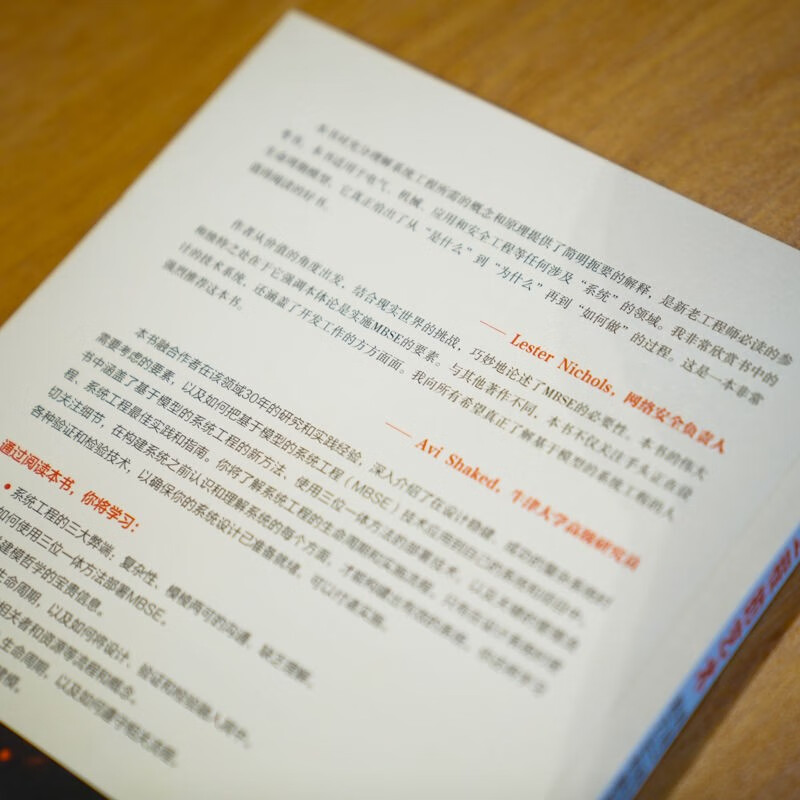 本书对充分理解系统工程所需的概念和原理提供了简明扼要的解释，是新老工程师必读的参
考书。本书适用于电气、机械、应用和安全工程等任何涉及“系统”的领域。我非常欣赏书中的
生命周期模型，它真正给出了从“是什么”到“为什么”再到“如何做”的过程。这是一本非常
值得阅读的好书。
—— Lester Nichols，网络安全负责人
作者从价值的角度出发，结合现实世界的挑战，巧妙地论述了MBSE的必要性。本书的伟大
和独特之处在于它强调本体论是实施MBSE的要素。与其他著作不同，本书不仅关注于从正在设
计的技术系统，还涵盖了开发工作的方方面面。我向所有希望真正了解基于模型的系统工程的人
强烈推荐这本书。
—— Avi Shaked，牛津大学高级研究员
本书融合作者在该领域30年的研究和实践经验，深入介绍了在设计稳健、成功的复杂系统时
需要考虑的要素，以及如何把基于模型的系统工程（MBSE）技术应用到自己的系统和项目中。
书中涵盖了基于模型的系统工程的新方法、使用三位一体方法的部署技术，以及关键的管理流
程、系统工程最佳实践和指南。你将了解系统工程的生命周期和实施流程。只有在设计系统时密
切关注细节，在构建系统之前认识和理解系统的每个方面，才能构建出有效的系统。你还将学习
各种验证和检验技术，以确保你的系统设计已准备就绪，可以付诸实施。
通过阅读本书，你将学习：
• 系统工程的三大弊端：复杂性、模棱两可的沟通、缺乏理解。
如何使用三位一体方法部署MBSE。
建模哲学的宝贵信息。
生命周期，以及如何将设计、验证和检验融入其中。
相关者和资源等流程和概念。
生命周期，以及如何遵守相关流程。
建模。